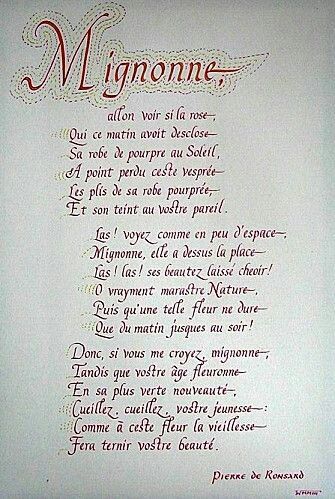 Mignonne,
allon voir si la rose
Qui ce matin avoit desclose
Sa robe de pourpre au Soleil,
A point perdu ceste vesprée
Les plis de sa robe pourprée,
Et son teint au vostre pareil.
Las! voyez comme en peu d'espace,
Mignonne, elle a dessus la place
Las! las! ses beautez laissé cheoir!
O vrayment marastre Nature,
Puis qu'une telle fleur ne dure
Que du matin jusques au soir!
Donc, si vous me croyez, mignonne,
Tandis que vostre âge fleuronne
En sa plus verte nouveauté,
Cueillez, cueillez, vostre jeunesse:
Comme à ceste fleur la vieillesse
Fera ternir vostre beauté.
Pierre de Ronsard